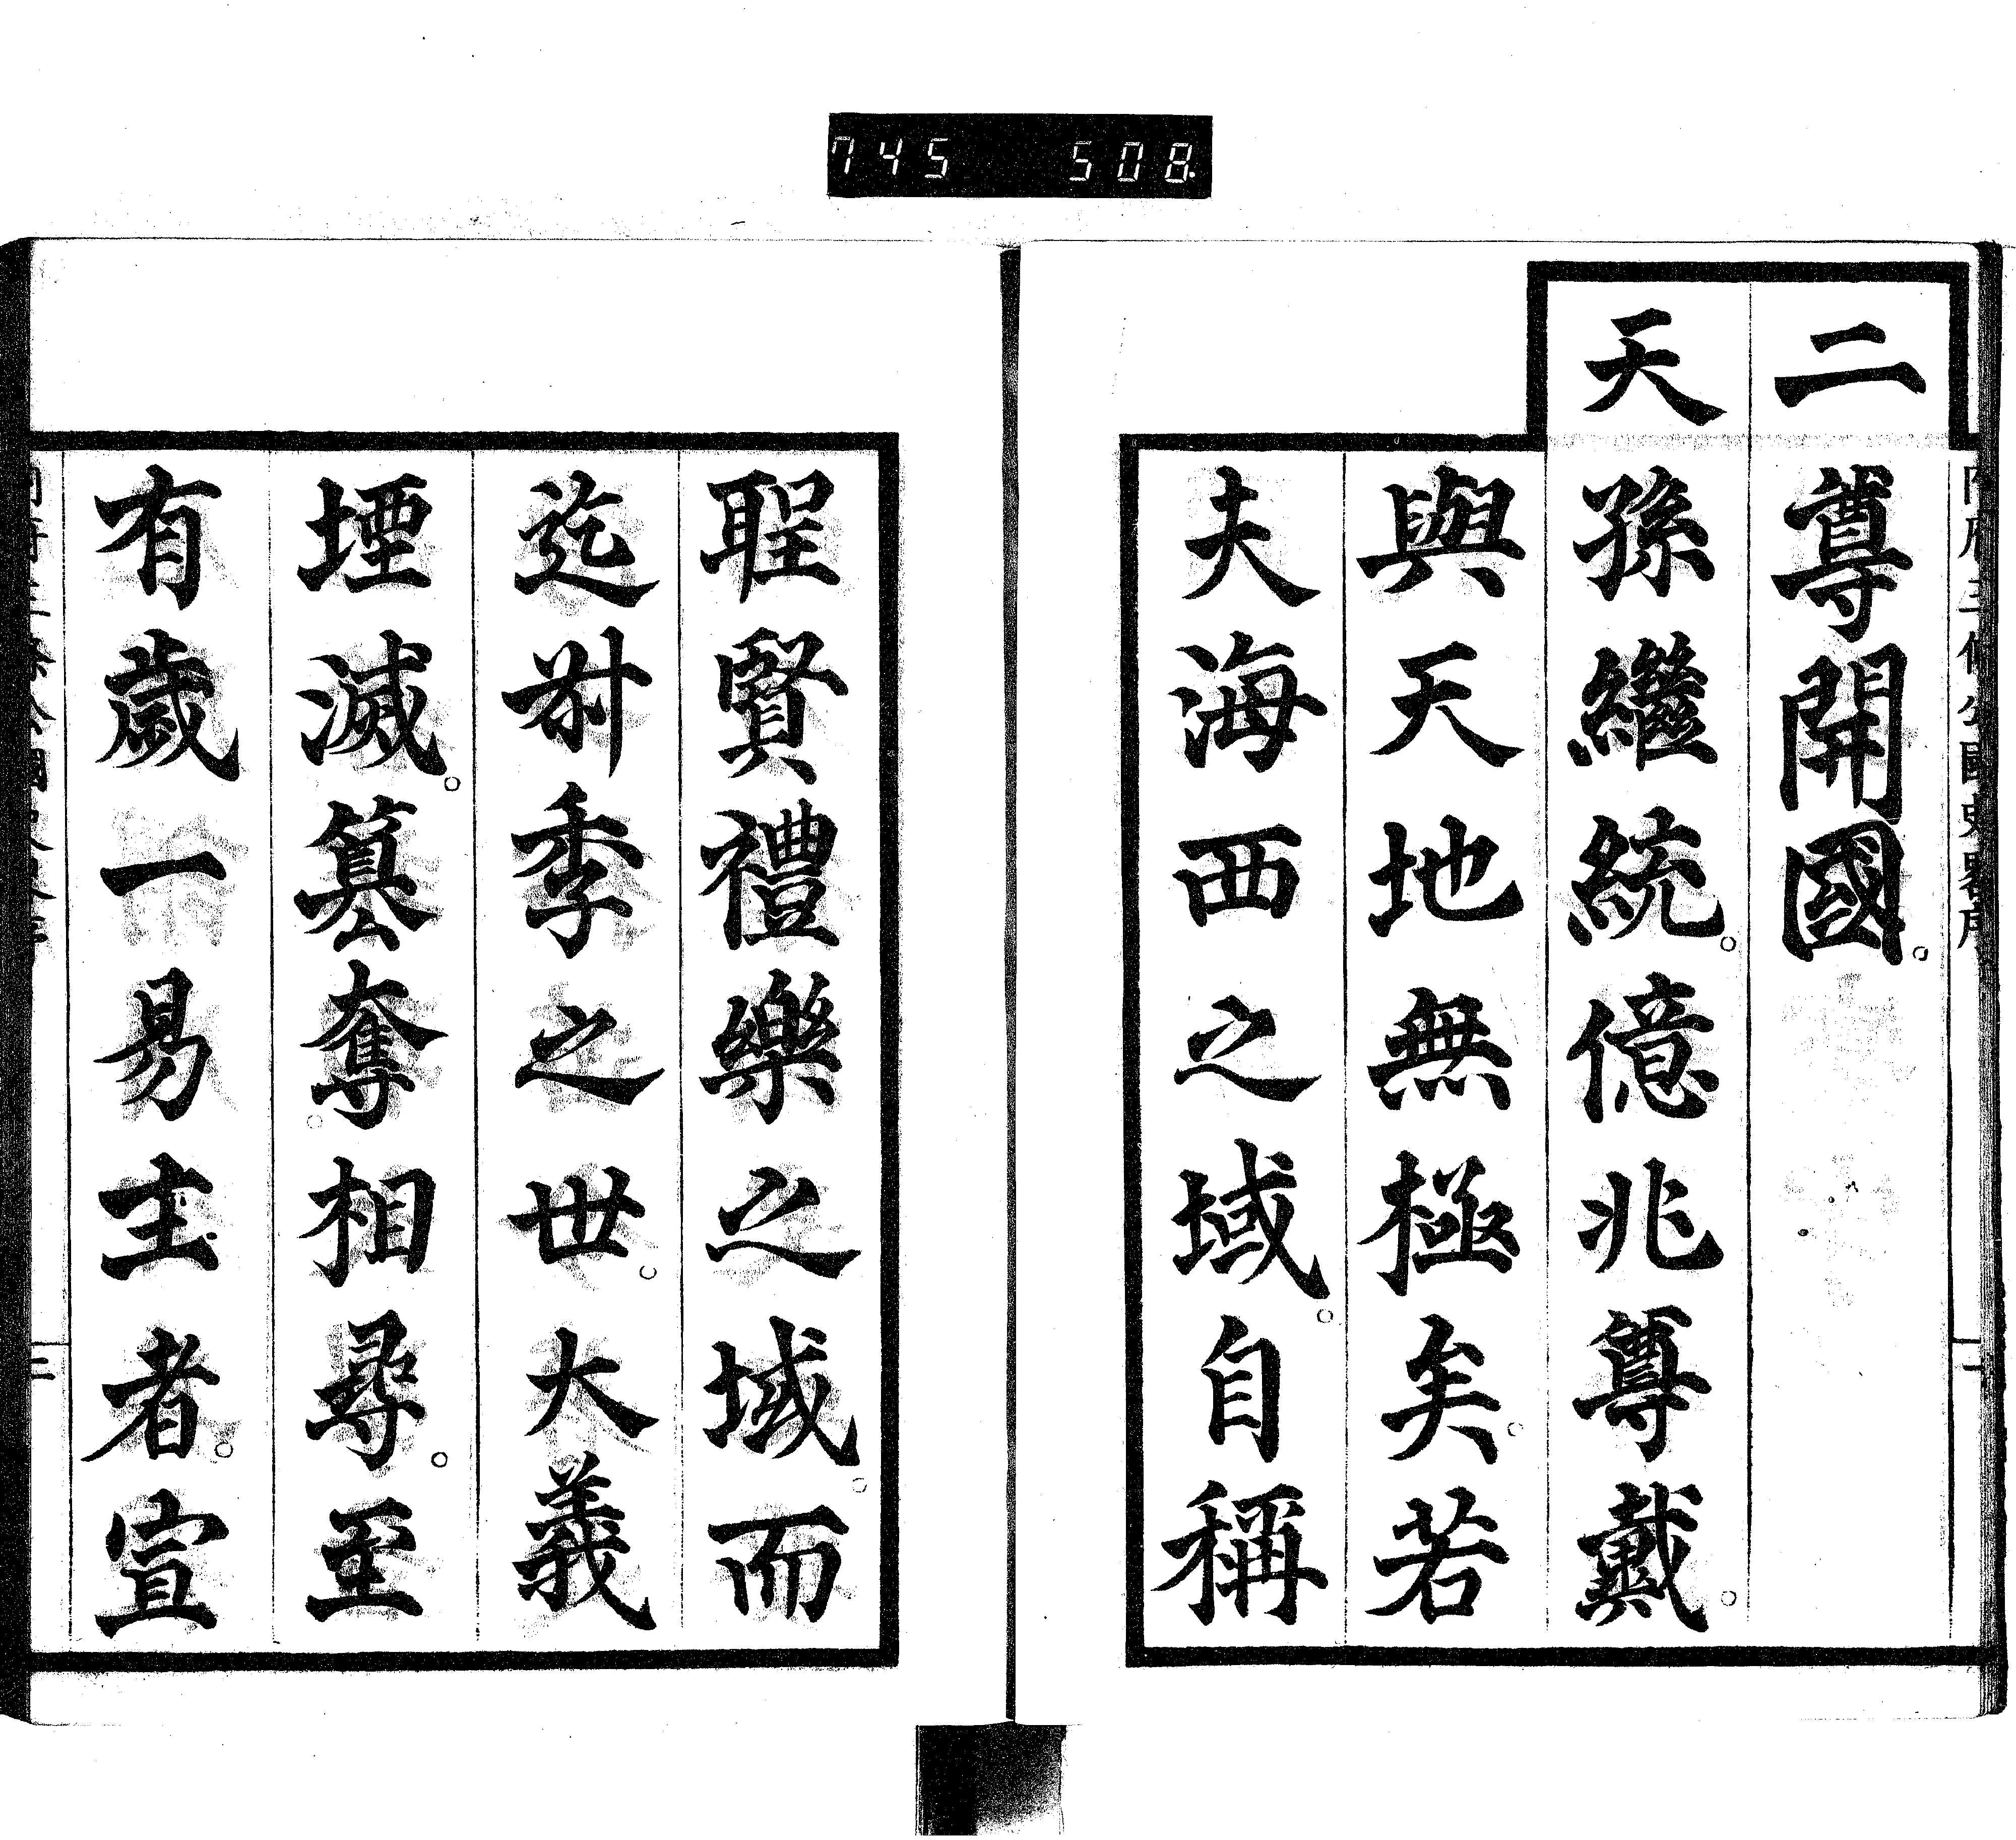 745 508
二尊開國。
天孫繼統。億兆尊戴。
與天地無極矣。若
夫海西之域。自稱
聖賢禮樂之域。而
迄叔季之世。大義
堙滅。篡奪相尋。至
有歲一易主者。宣